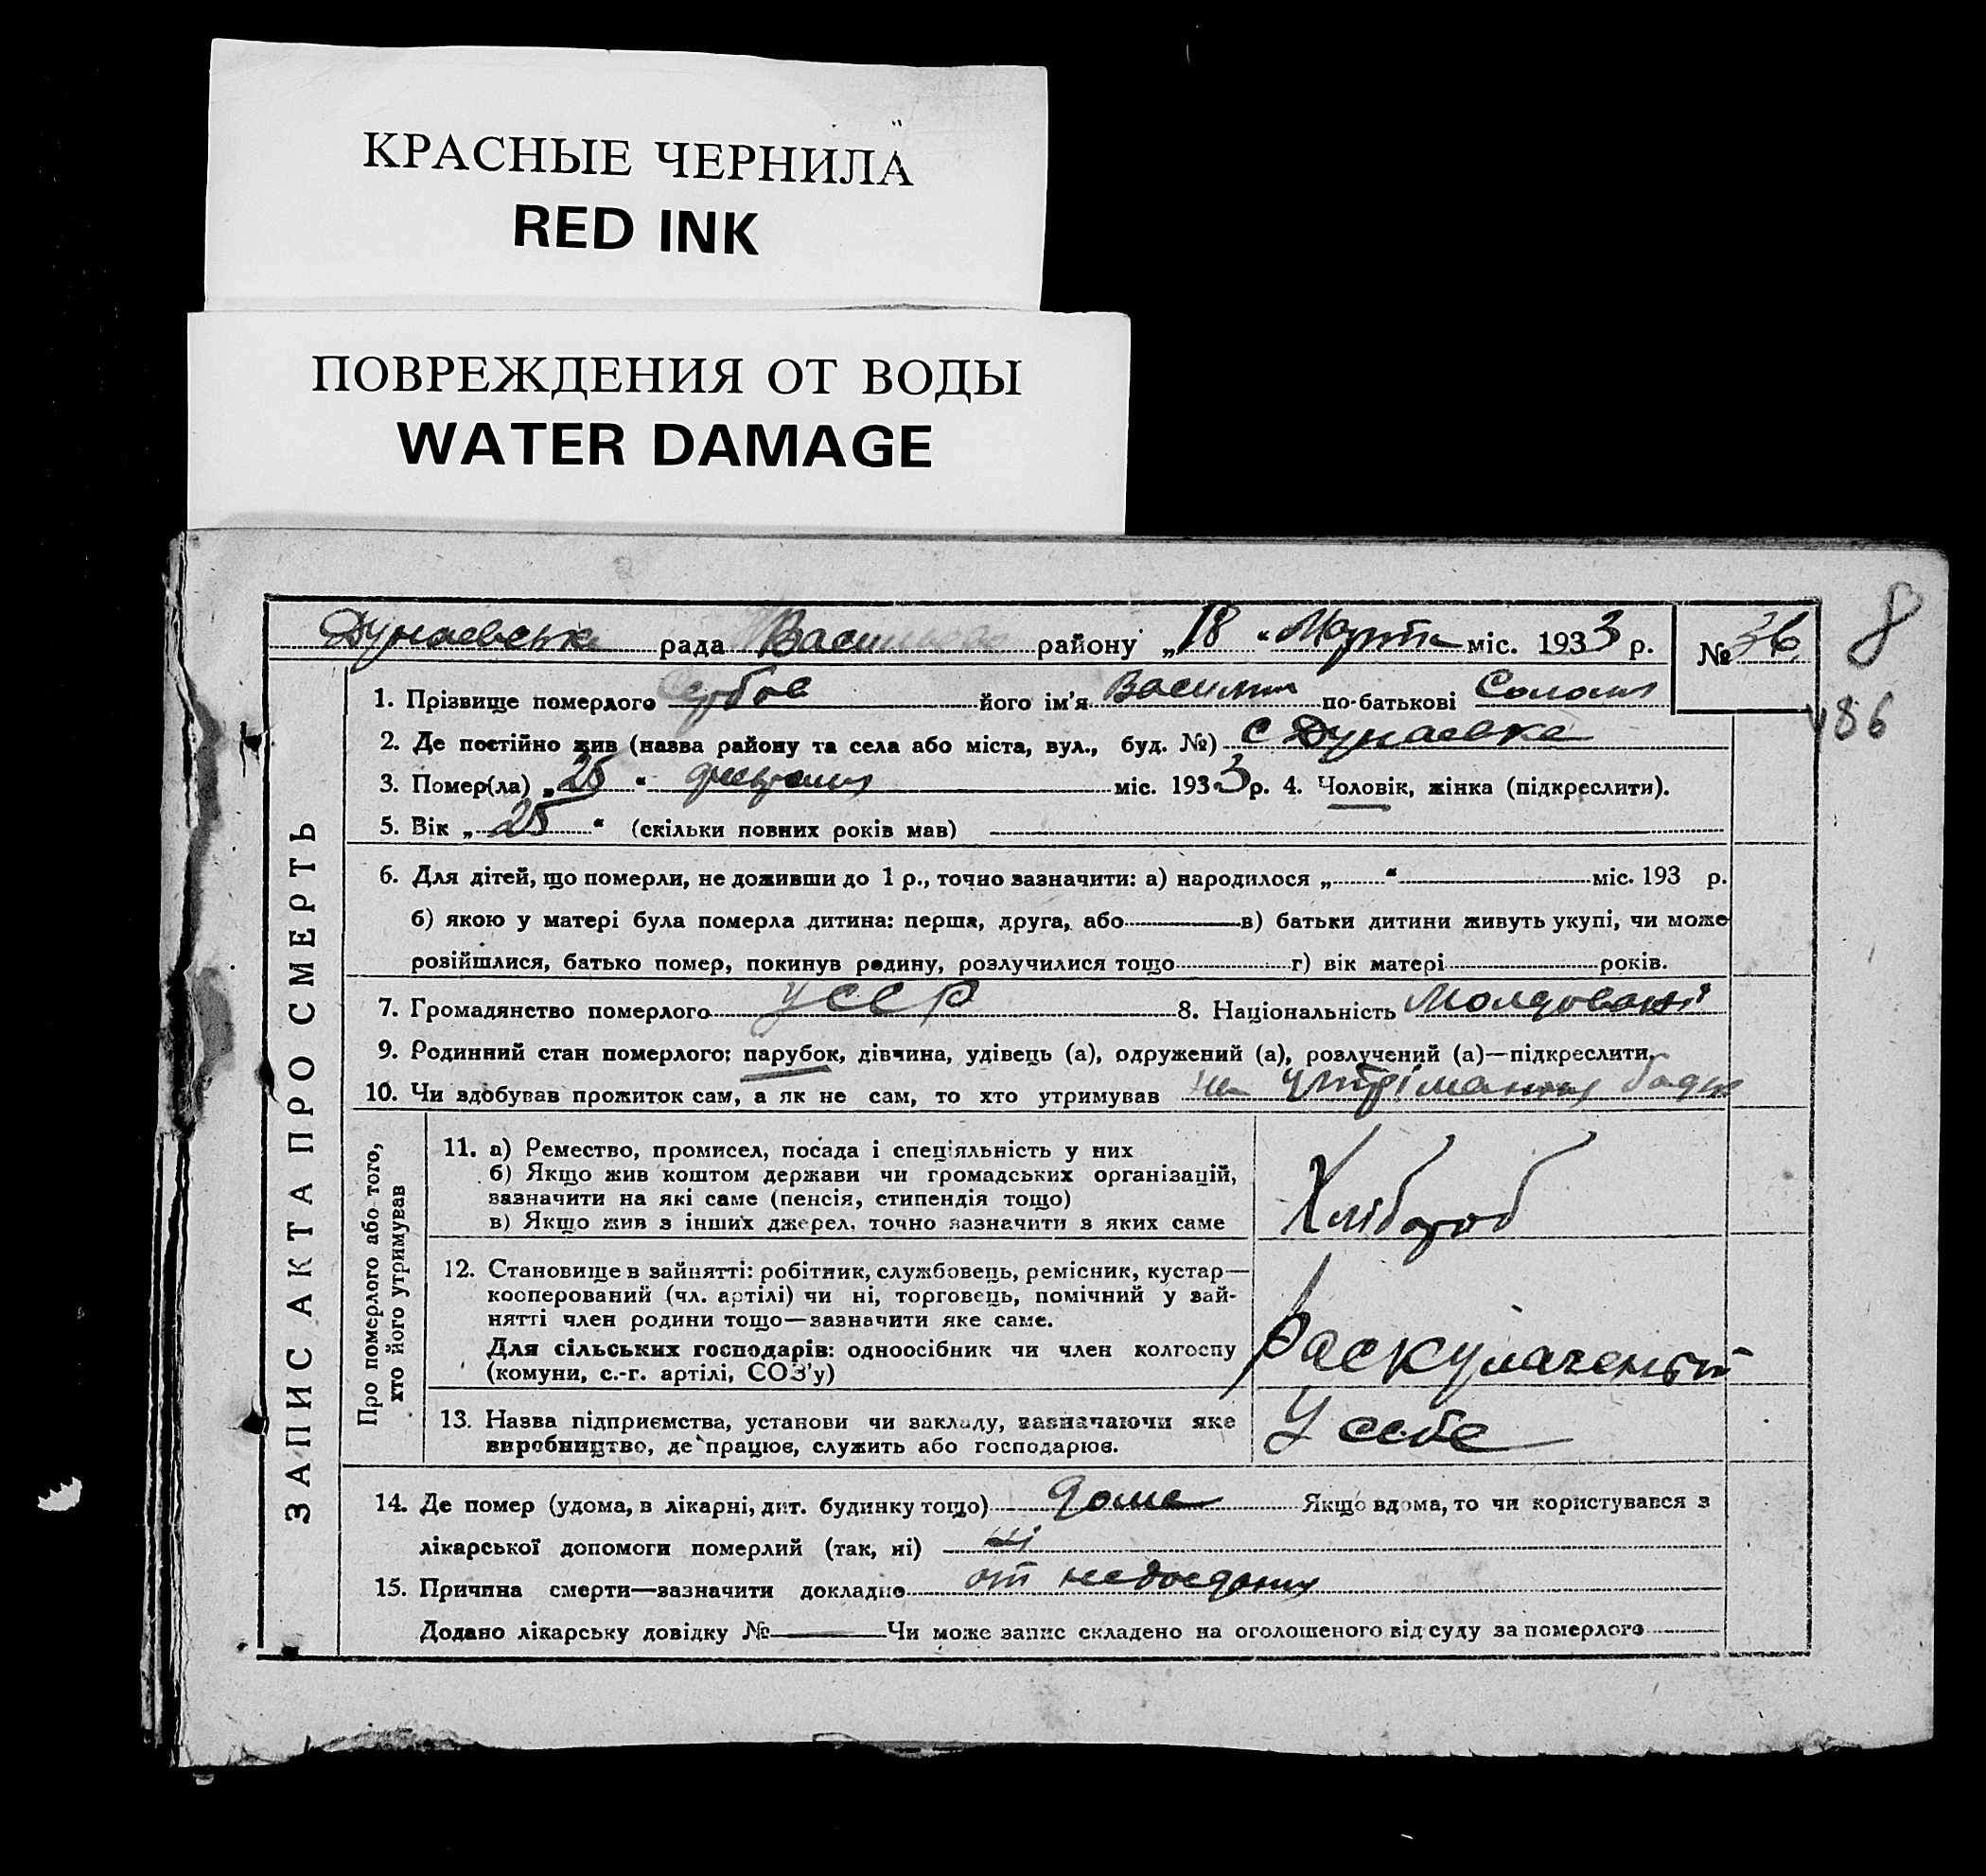 КРАСНЫЕ ЧЕРНИЛА
RED INK
ПОВРЕЖДЕНИЯ ОТ ВОДЫ
WATER DAMAGE
8
Дунаевська рада району „18 “ Марта міс. 1933 р. № 36
186
1. Прізвище померлого його ім'я Василий по-батькові
2. Де постійно жив (назва району та села або міста, вул., буд. №) с Дунаевка
3. Помер(ла) „25 “ міс. 1933 р. 4. Чоловік, жінка (підкреслити).
5. Вік „ 25 “ (скільки повних років мав)
6. Для дітей, що померли, не доживши до 1 р., точно зазначити: а) народилося „ “ міс. 193 р.
б) якою у матері була померла дитина: перша, друга, або в) батьки дитини живуть укупі, чи може
розійшлися, батько помер, покинув родину, розлучилися тощо г) вік матері років.
7. Громадянство померлого УССР 8. Національність
9. Родинний стан померлого: парубок, дівчина, удівець (а), одружений (а), розлучений (а)—підкреслити.
10. Чи здобував прожиток сам, а як не сам, то хто утримував на утріманиї
ЗАПИС АКТА ПРО СМЕРТЬ
Про померлого або того,
хто його утримував
11. а) Ремество, промисел, посада і спеціяльність у них
б) Якщо жив коштом держави чи громадських організацій,
зазначити на які саме (пенсія, стипендія тощо)
в) Якщо жив з інших джерел, точно зазначити з яких саме
Хлібороб
12. Становище в зайнятті: робітник, службовець, ремісник, кустар—
кооперований (чл. артілі) чи ні, торговець, помічний у зай-
нятті член родини тощо—зазначити яке саме.
Для сільських господарів: одноосібник чи член колгоспу
(комуни, с.-г. артілі, СОЗ'у)
Раскулаченый
13. Назва підприємства, установи чи закладу, зазначаючи яке
виробництво, де працює, служить або господарює.
У себе
14. Де помер (удома, в лікарні, дит. будинку тощо) дома Якщо вдома, то чи користувався з
лікарської допомоги померлий (так, ні) ні
15. Причина смерти—зазначити докладно от недоедания
Додано лікарську довідку № Чи може запис складено на оголошеного від суду за померлого